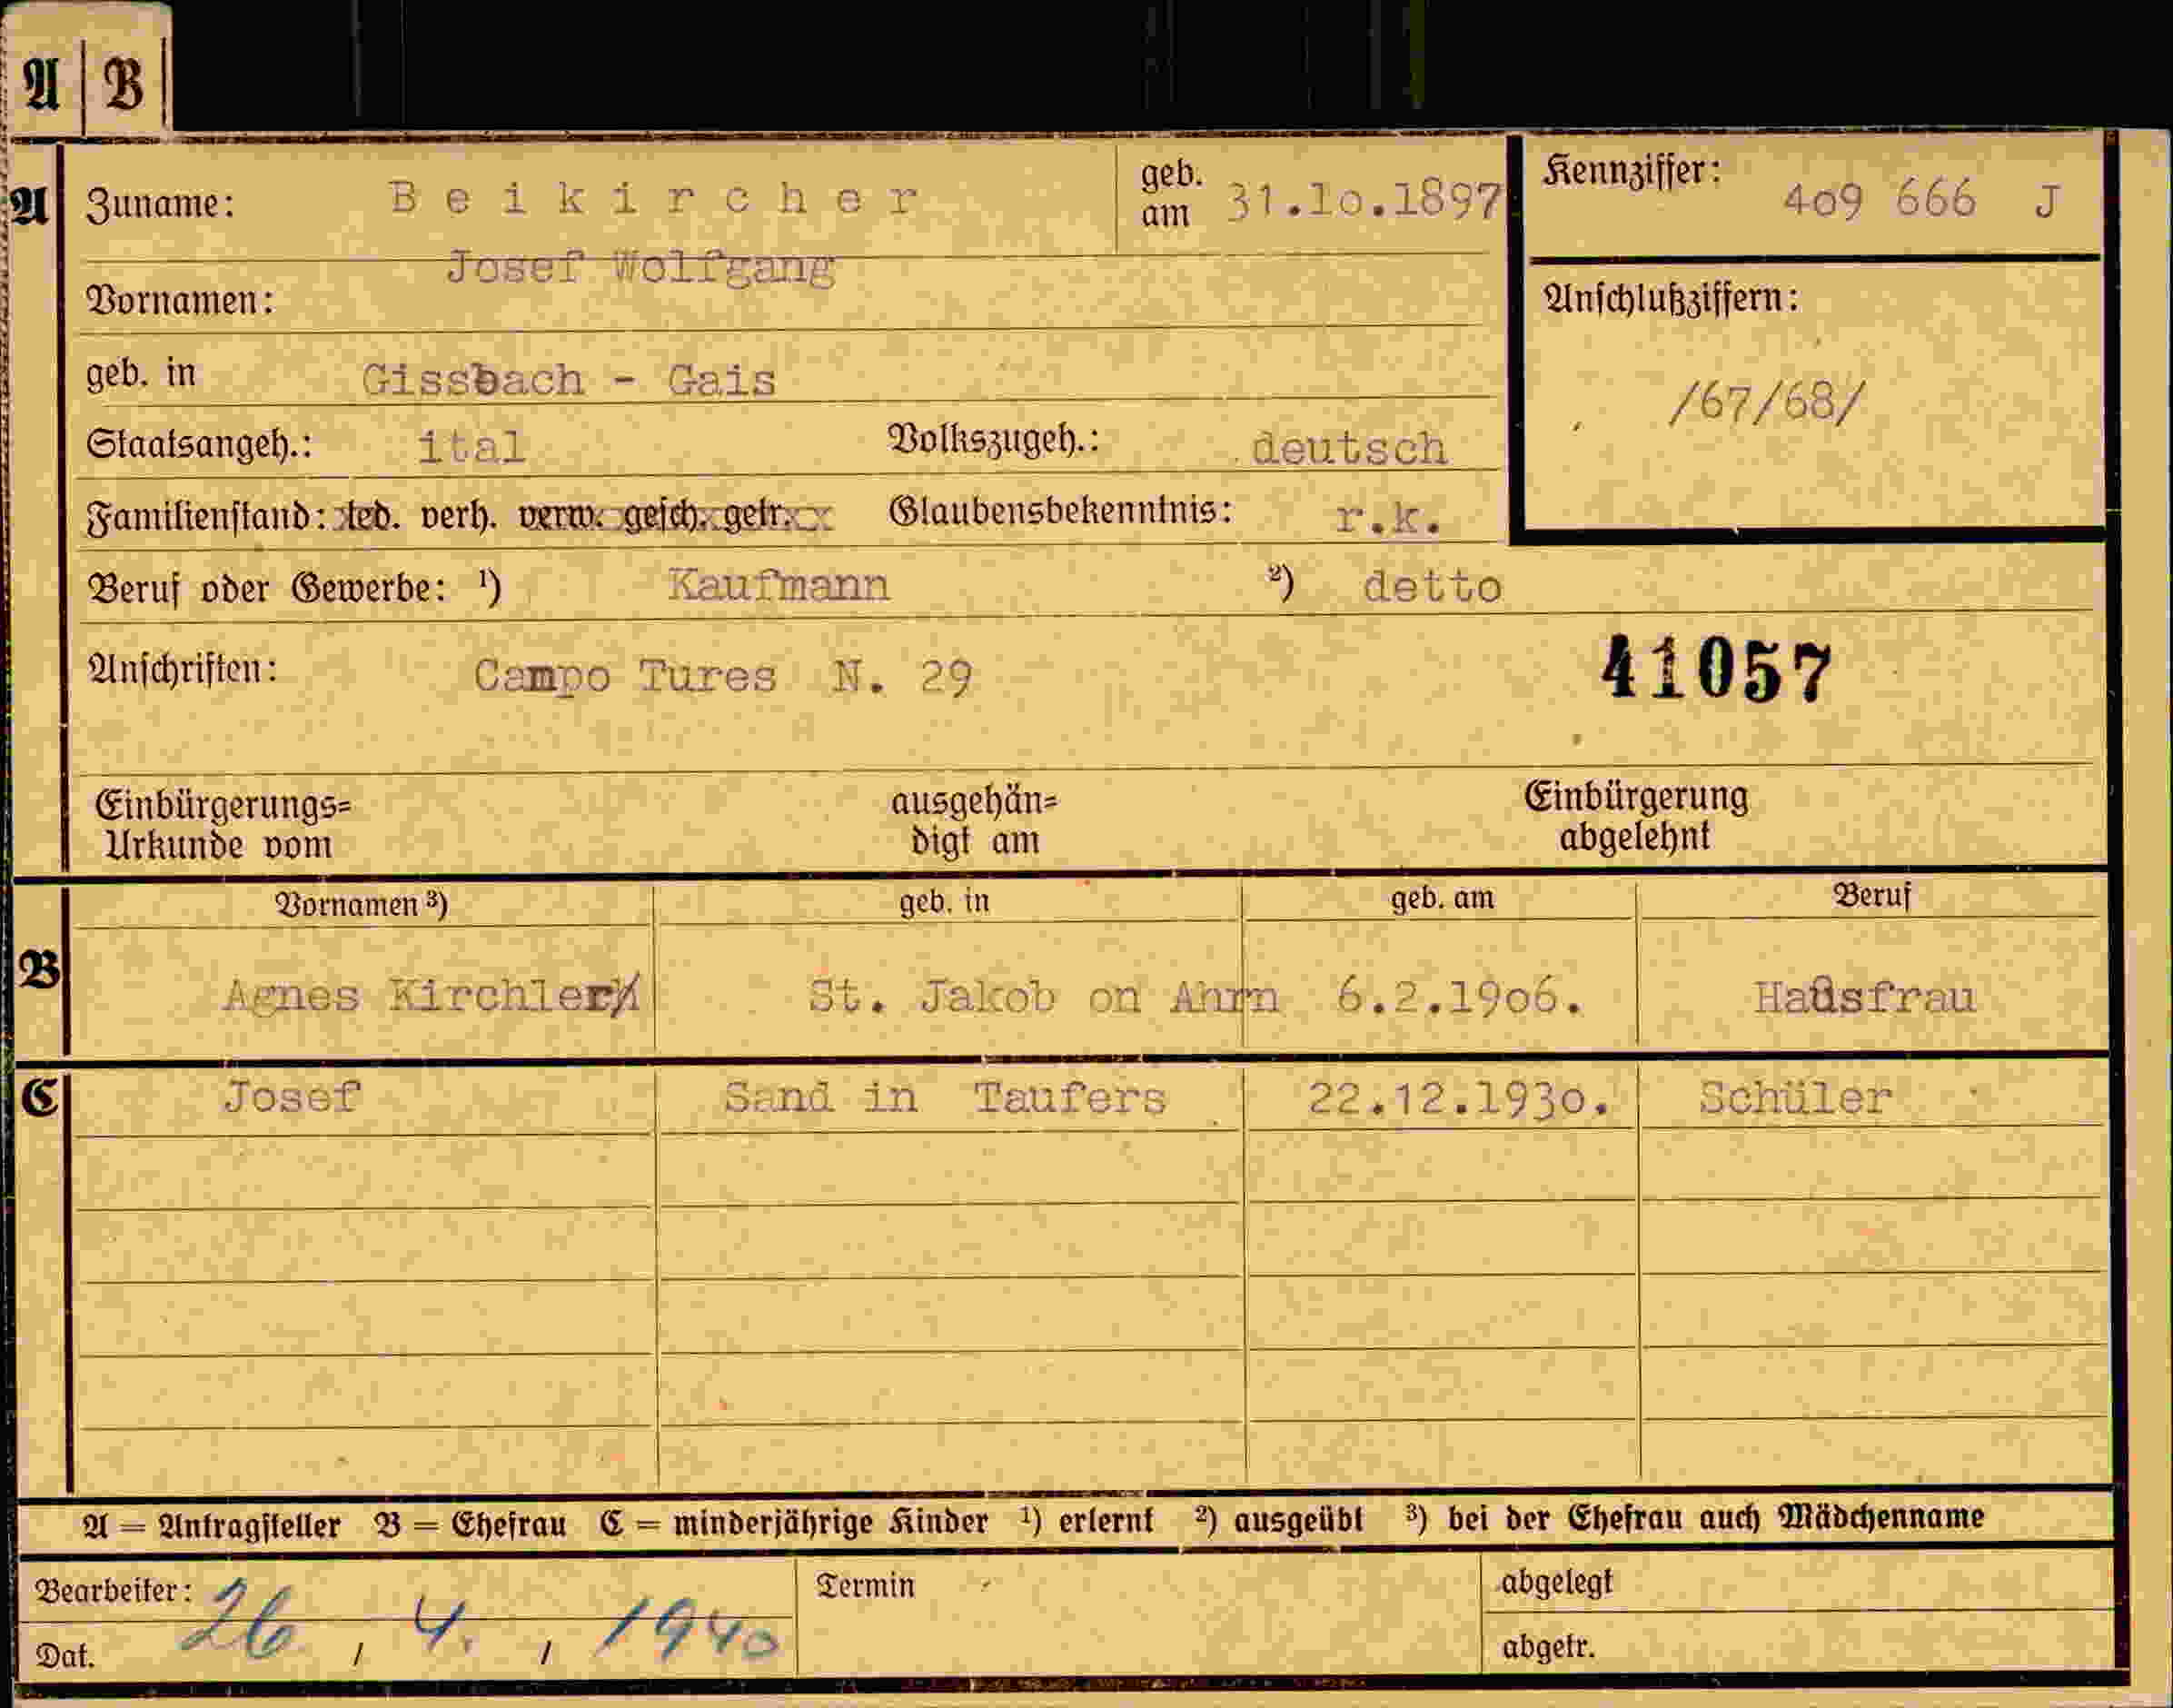 A B
A Zuname: Beikircher geb. am 31.10.1897 Kennziffer: 409 666 J
Vornamen: Josef Wolfgang Anschlußziffern:
geb. in Gissbach - Gais /67/68/
Staatsangeh.: ital Volkszugeh.: deutsch
Familienstand: led. verh. verw. gesch. getr. Glaubensbekenntnis: r.k.
Beruf oder Gewerbe: ¹) Kaufmann ²) detto
Anschriften: Campo Tures N. 29 41057
Einbürgerungs= ausgehän= Einbürgerung
Urkunde vom digt am abgelehnt
Vornamen ³) geb. in geb. am Beruf
B Agnes Kirchler St. Jakob on Ahrn 6.2.1906. Hausfrau
C Josef Sand in Taufers 22.12.1930. Schüler
A = Antragsteller B = Ehefrau C = minderjährige Kinder ¹) erlernt ²) ausgeübt ³) bei der Ehefrau auch Mädchenname
Bearbeiter: Termin abgelegt
Dat. 26 / 4. / 1940 abgetr.